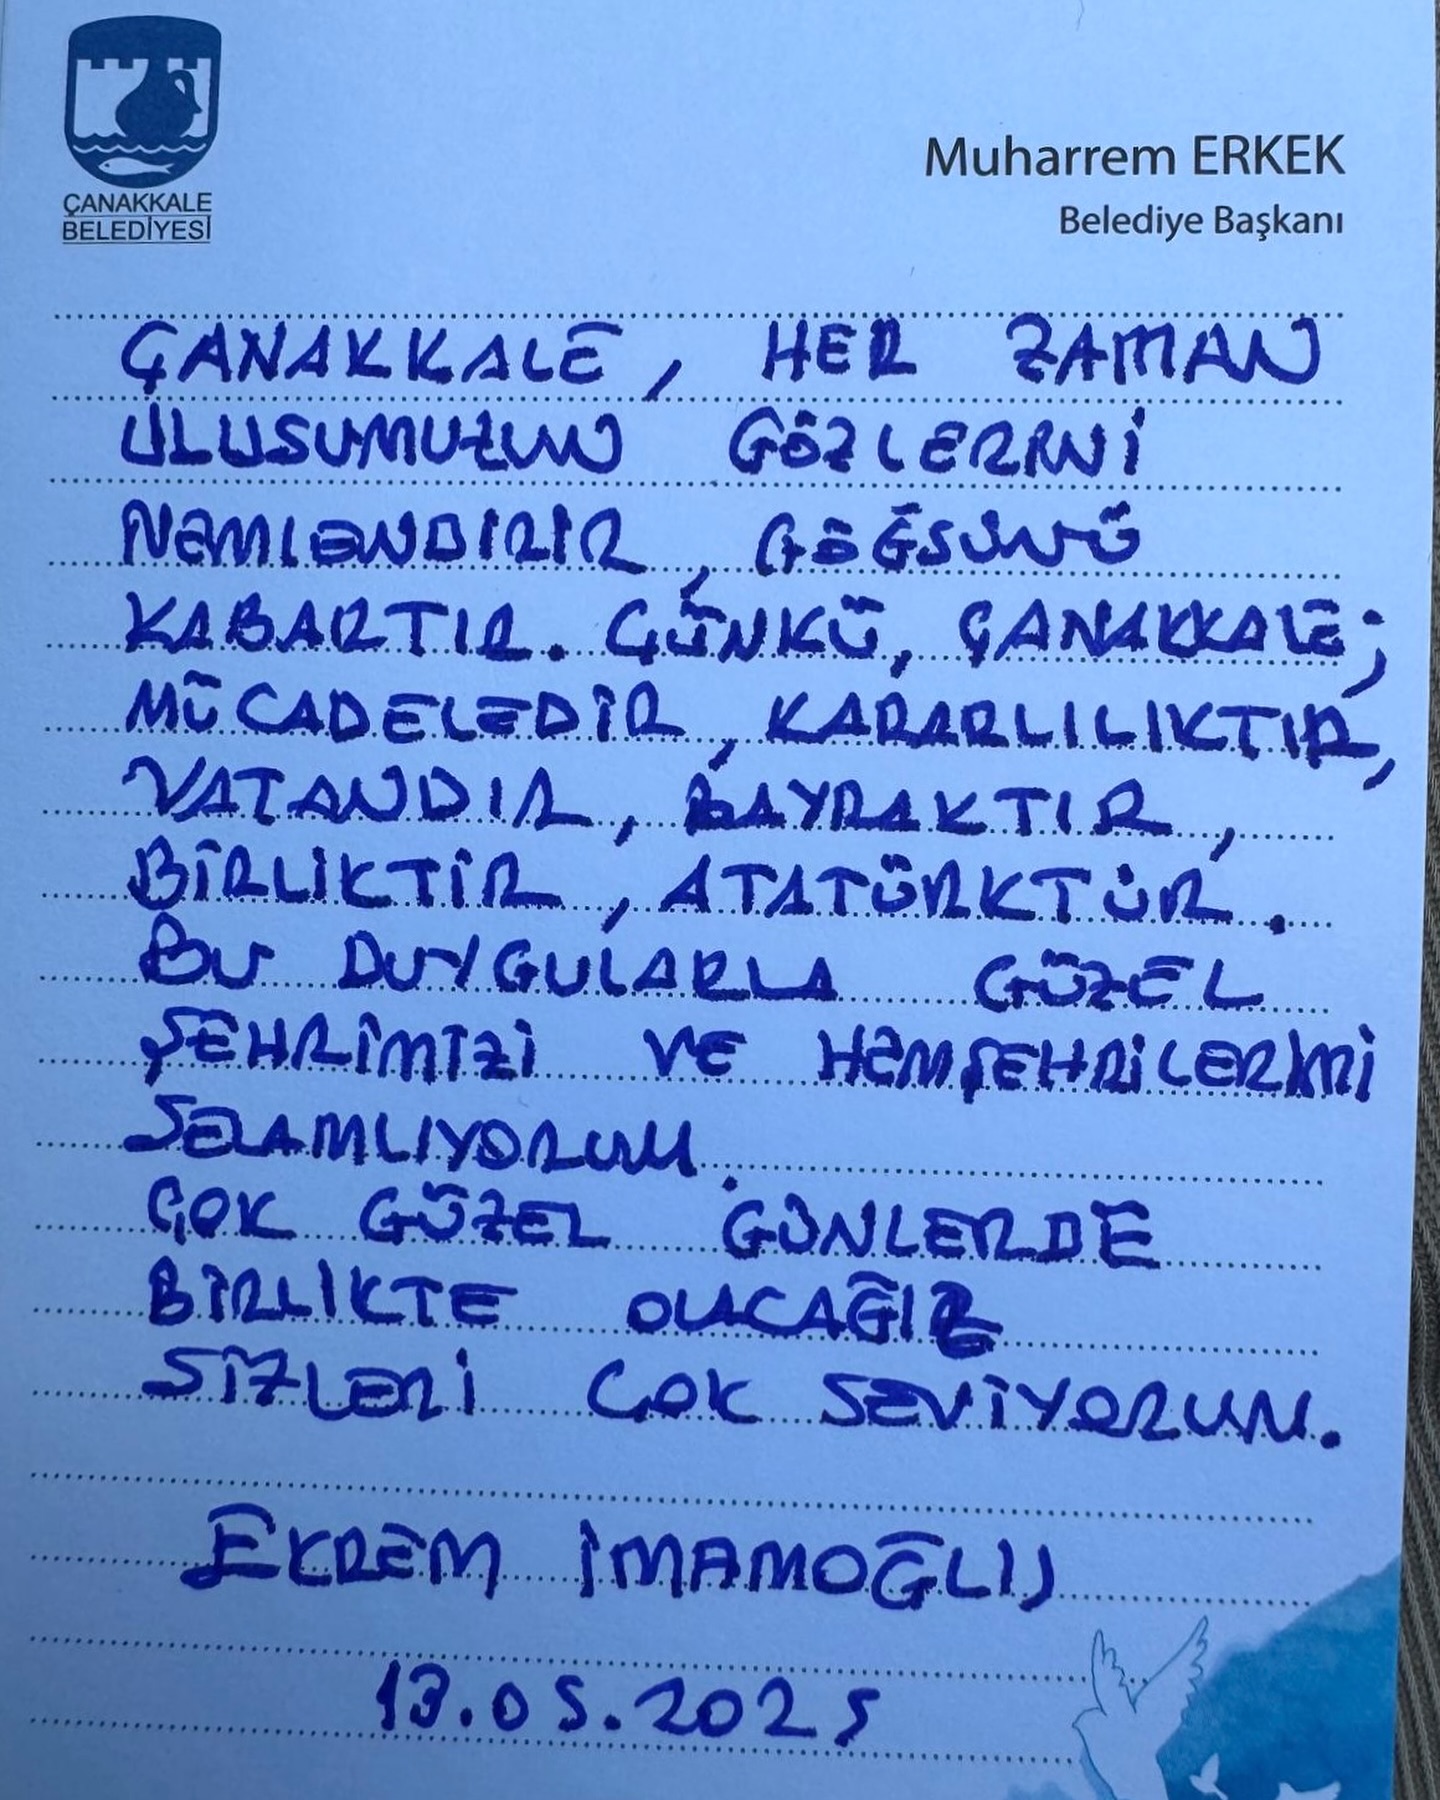 ÇANAKKALE
BELEDİYESİ
Muharrem ERKEK
Belediye Başkanı
ÇANAKKALE, HER ZAMAN
ULUSUMUZUN GÖZLERİNİ
NEMLENDİRİR, GÖĞSÜNÜ
KABARTIR. ÇÜNKÜ, ÇANAKKALE;
MÜCADELEDİR, KARARLILIKTIR,
VATANDIR, BAYRAKTIR,
BİRLİKTİR, ATATÜRKTÜR.
BU DUYGULARLA GÜZEL
ŞEHRİMİZİ VE HEMŞEHRİLERİMİ
SELAMLIYORUM.
ÇOK GÜZEL GÜNLERDE
BİRLİKTE OLACAĞIZ
SİZLERİ ÇOK SEVİYORUM.
EKREM İMAMOĞLU
13.05.2025